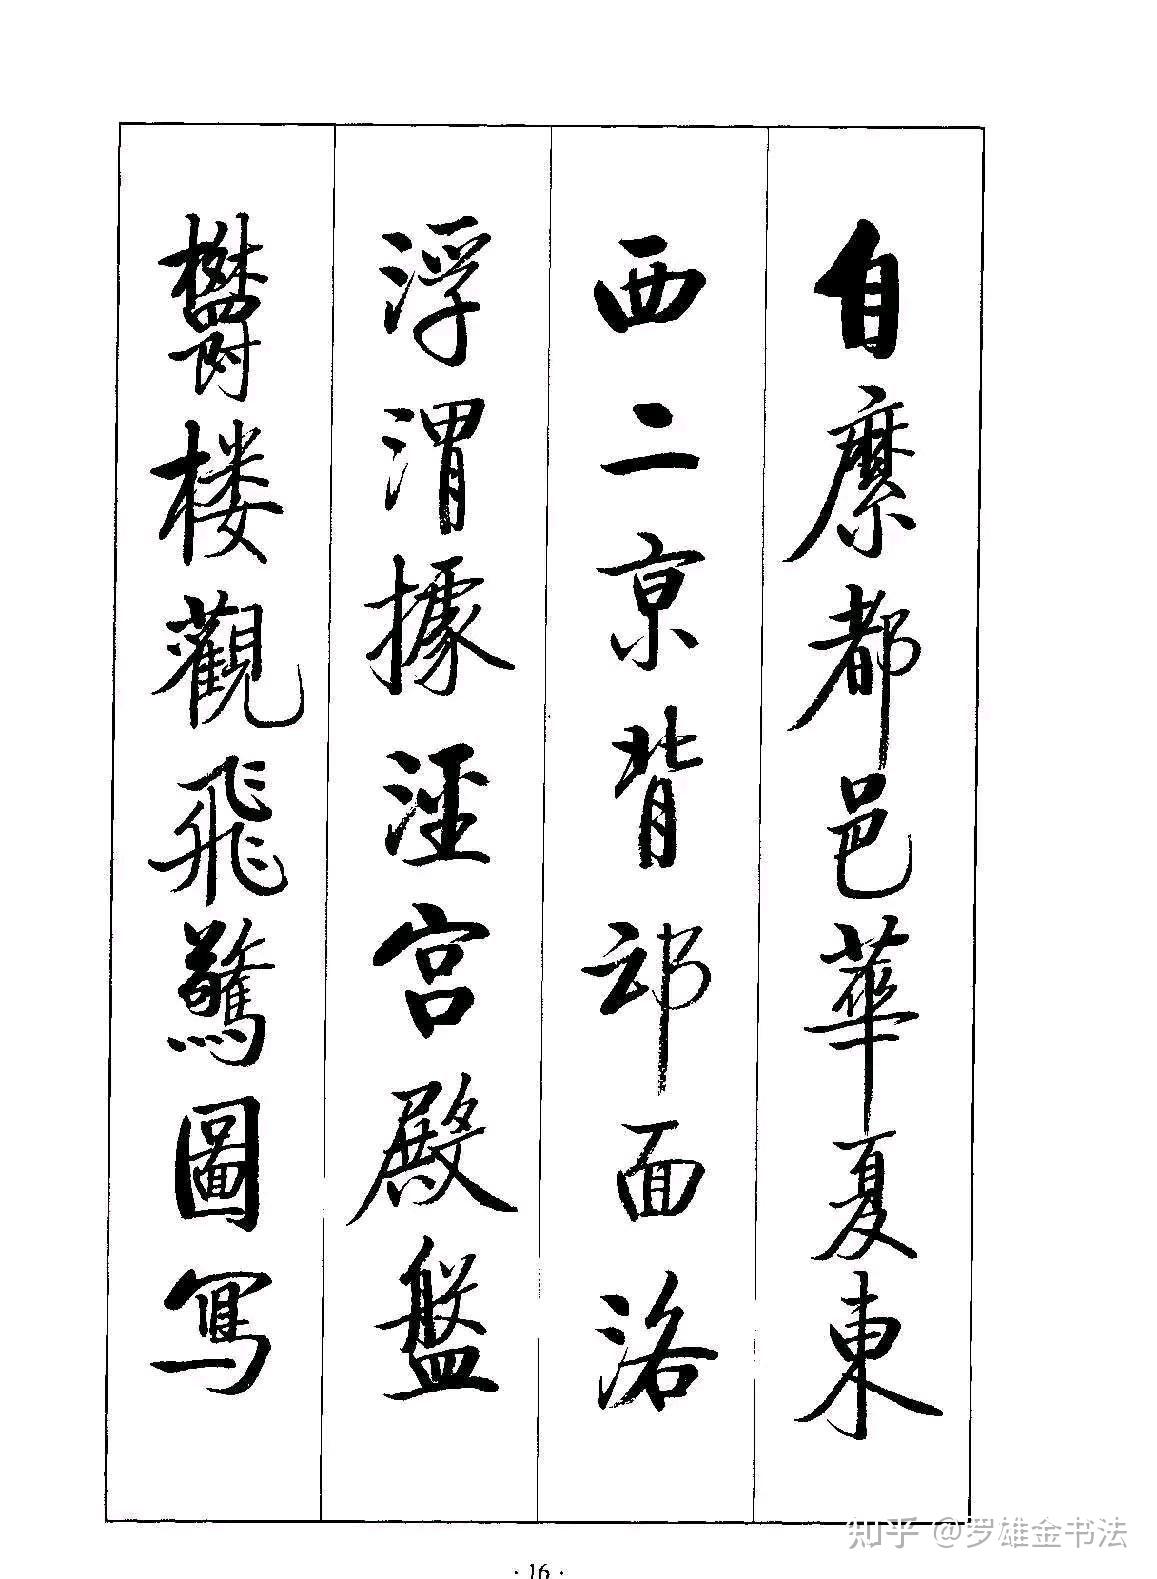 自縻都邑華夏東
西二京背邙面洛
浮渭據涇宮殿盤
欝楼觀飛驚圖寫
知乎 @罗雄金书法
·16·